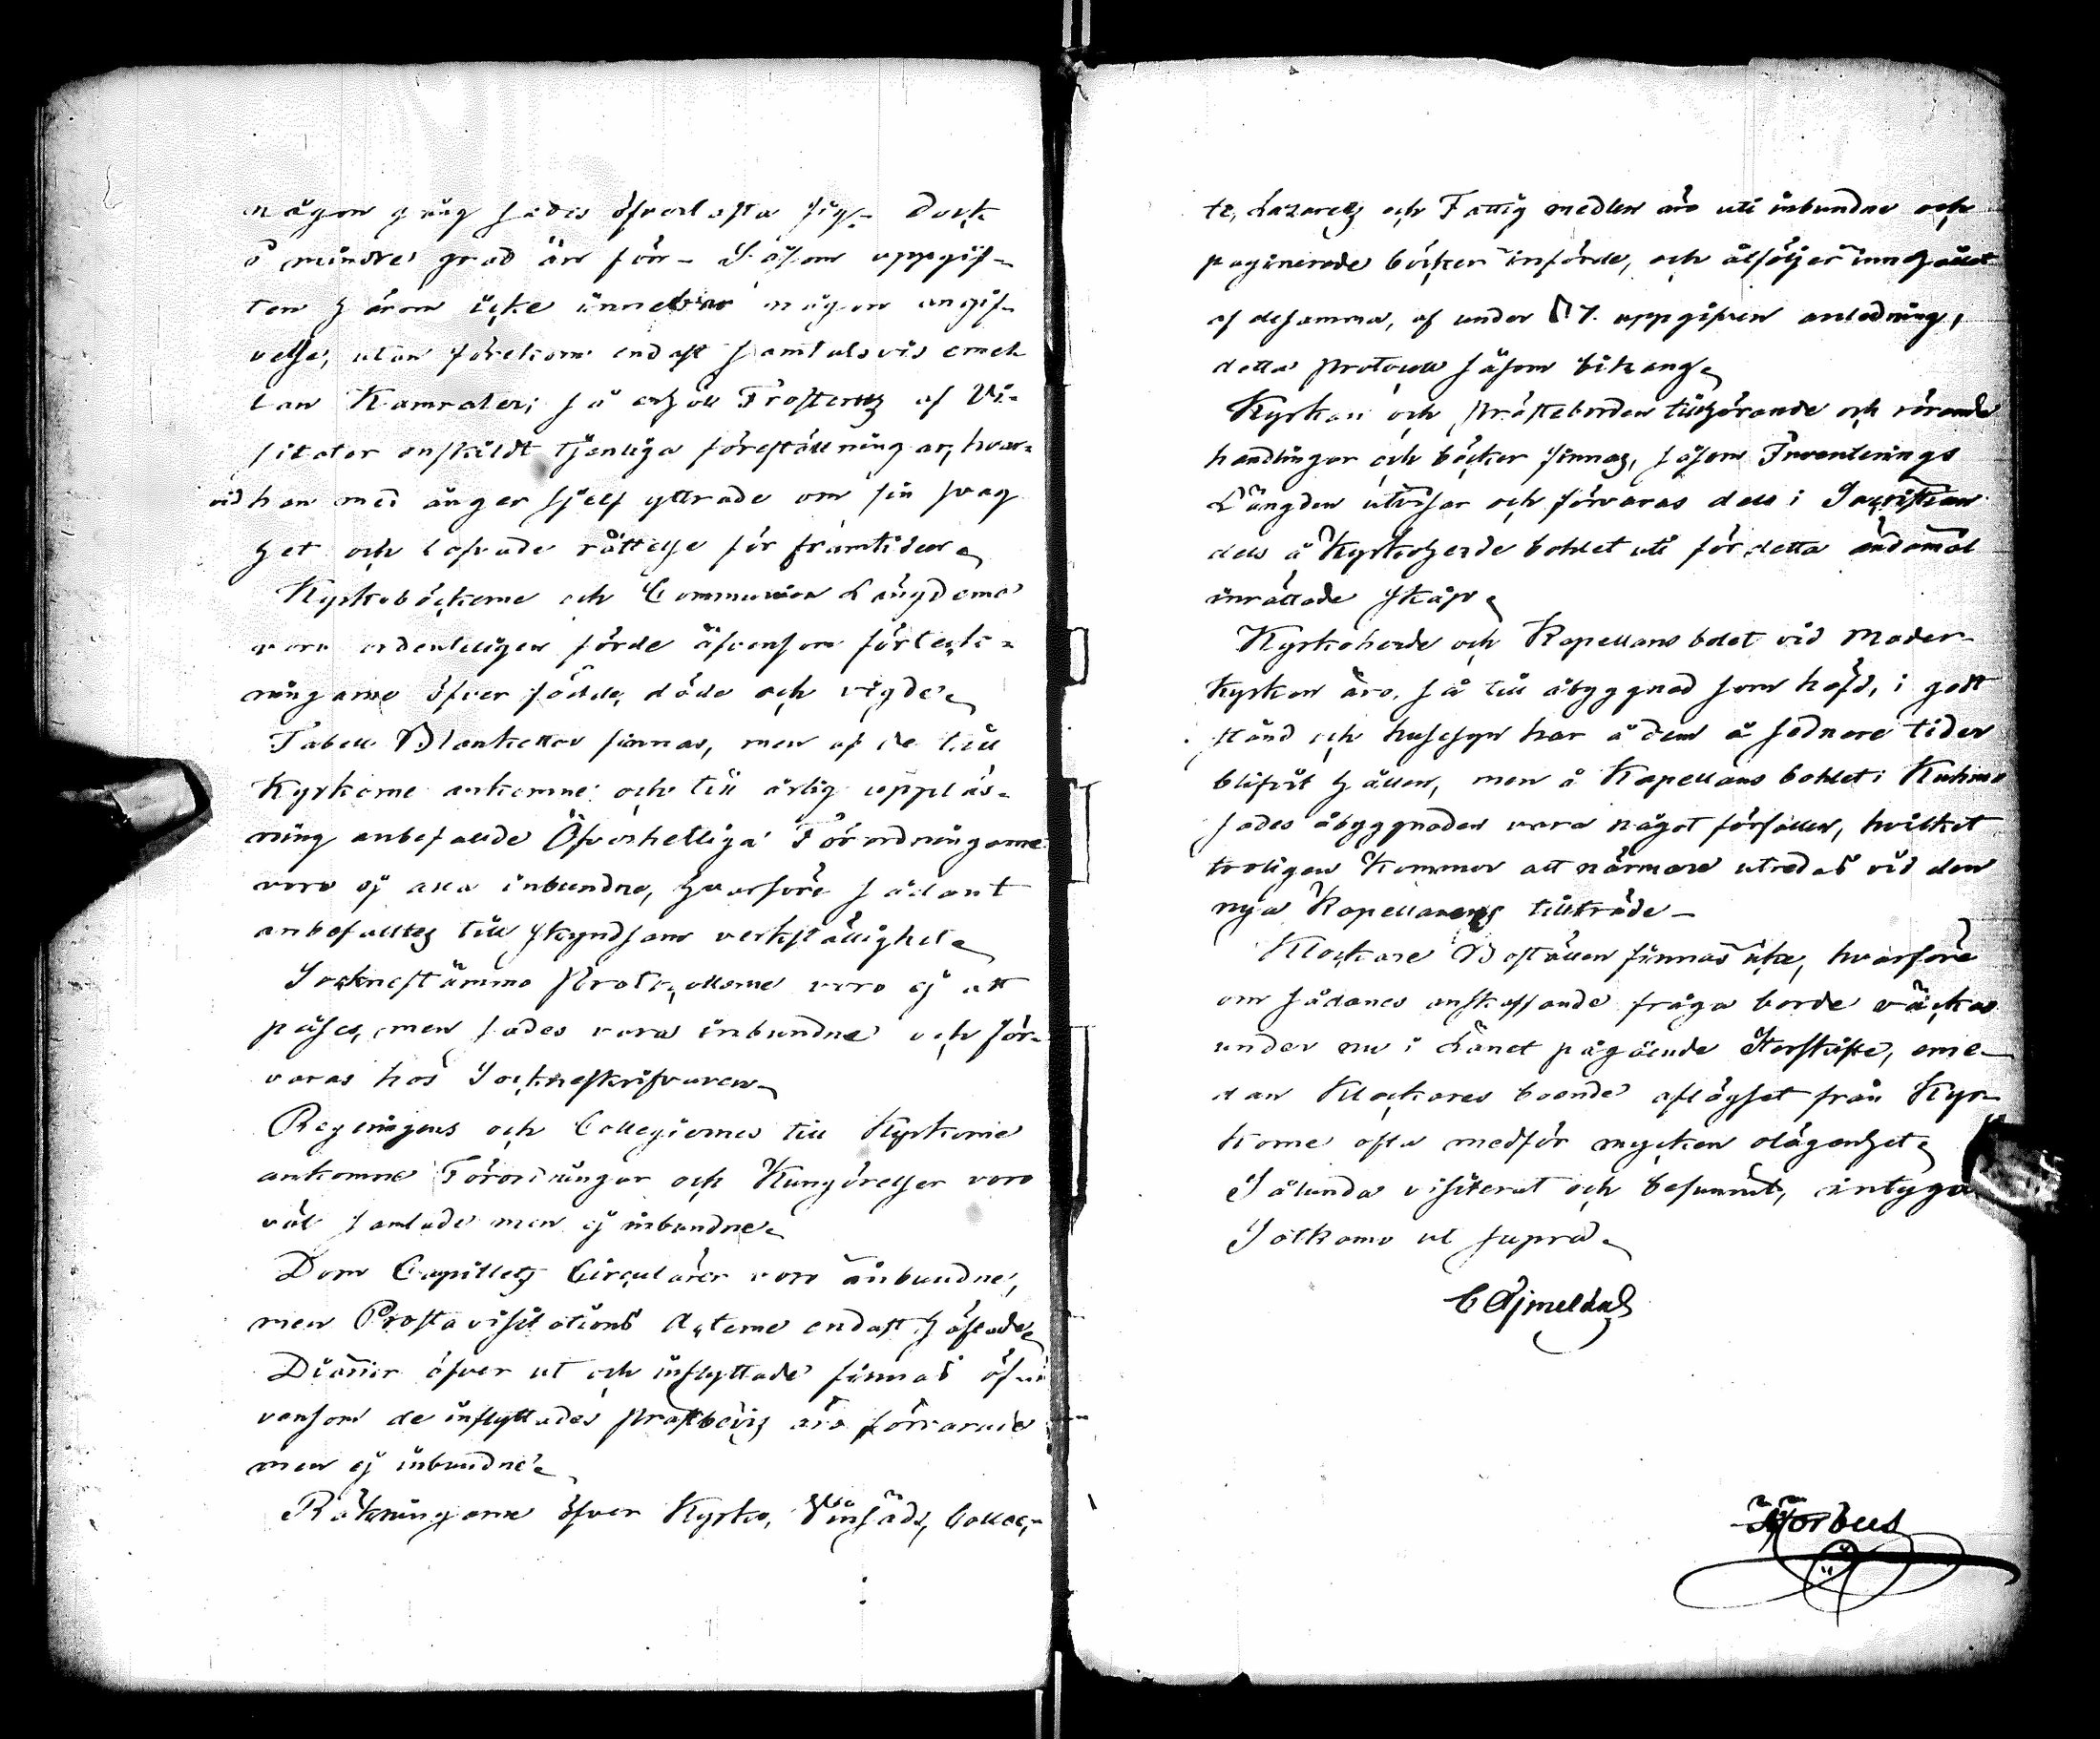 någon gång sades öfverlasta sig. Dock
i mindre grad än förr – Såsom uppgif-
ten härom icke innebar någon angif-
velse, utan förekom endast samtalsvis emel
lan Kamrater; så erhöll Frosterus af Vi-
sitator enskildt tjenliga föreställningar, hvar-
vid han med ånger sjelf yttrade om sin svag
het och lofvade rättelse för framtiden
Kyrkoböckerne och Communion Längderne
voro ordentligen förde äfvensom förteck-
ningarne öfver födde, döde och vigde
Tabell Blanketter finnas, men af de till
Kyrkorne ankomne och till årlig upplås-
ning anbefallde Öfverhetliga Förordningarne
voro ej alla inbundne, hvarföre sådant
anbefalltes till skyndsam verkställighet
Socknestämmo Protocollerne voro ej att
påse, men sades vara inbundne och för-
varas hos Sockneskrifvaren
Regeringens och Collegiernes till Kyrkorne
ankomne Förordningar och Kungörelser voro
väl samlade men ej inbundne
Dom Capitlets Circulärer voro inbundne,
men Prosta visitations Acterne endast häftade
Diarier öfver ut och inflyttade finnas äf
vensom de inflyttades prästbevis äro förvarade
men ej inbundne
Räkningarne öfver Kyrko, Vinsäds, Collec-
te, Lazaretts och Fattig medlen äro uti inbundne och
paginerade böcker införde, och åtföljer innehållet
af desamma, af under § 7. uppgifven anledning,
detta protocoll såsom bihang
Kyrkan och prästeborden tillhörande och rörande
handlingar och böcker finnas, såsom Inventerings
Längden utvisar och förvaras dels i Sacristian
dels å Kyrkoherde bohlet uti för detta ändamål
inrättade skåp
Kyrkoherde och Kapellans bolet vid Moder-
kyrkan äro, så till åbyggnad som häfd, i godt
stånd och husesyn har å dem å sednare tider
blifvit hållen, men å Kapellans bohlet i Kuhmo
sades åbyggnaden vara något förfallen, hvilket
troligen kommer att närmare utredas vid den
nya Kapellanens tillträde –
Klockare Boställen finnas icke, hvarföre
om sådanes anskaffande fråga borde väckas
under nu i Länet pågående Storskifte, eme-
dan Klockares boende aflägset från Kyr-
korne ofta medför mycken olägenhet
Sålunda visiterat och befunnit, intygar
Sotkamo ut supra
C Ajmelæus